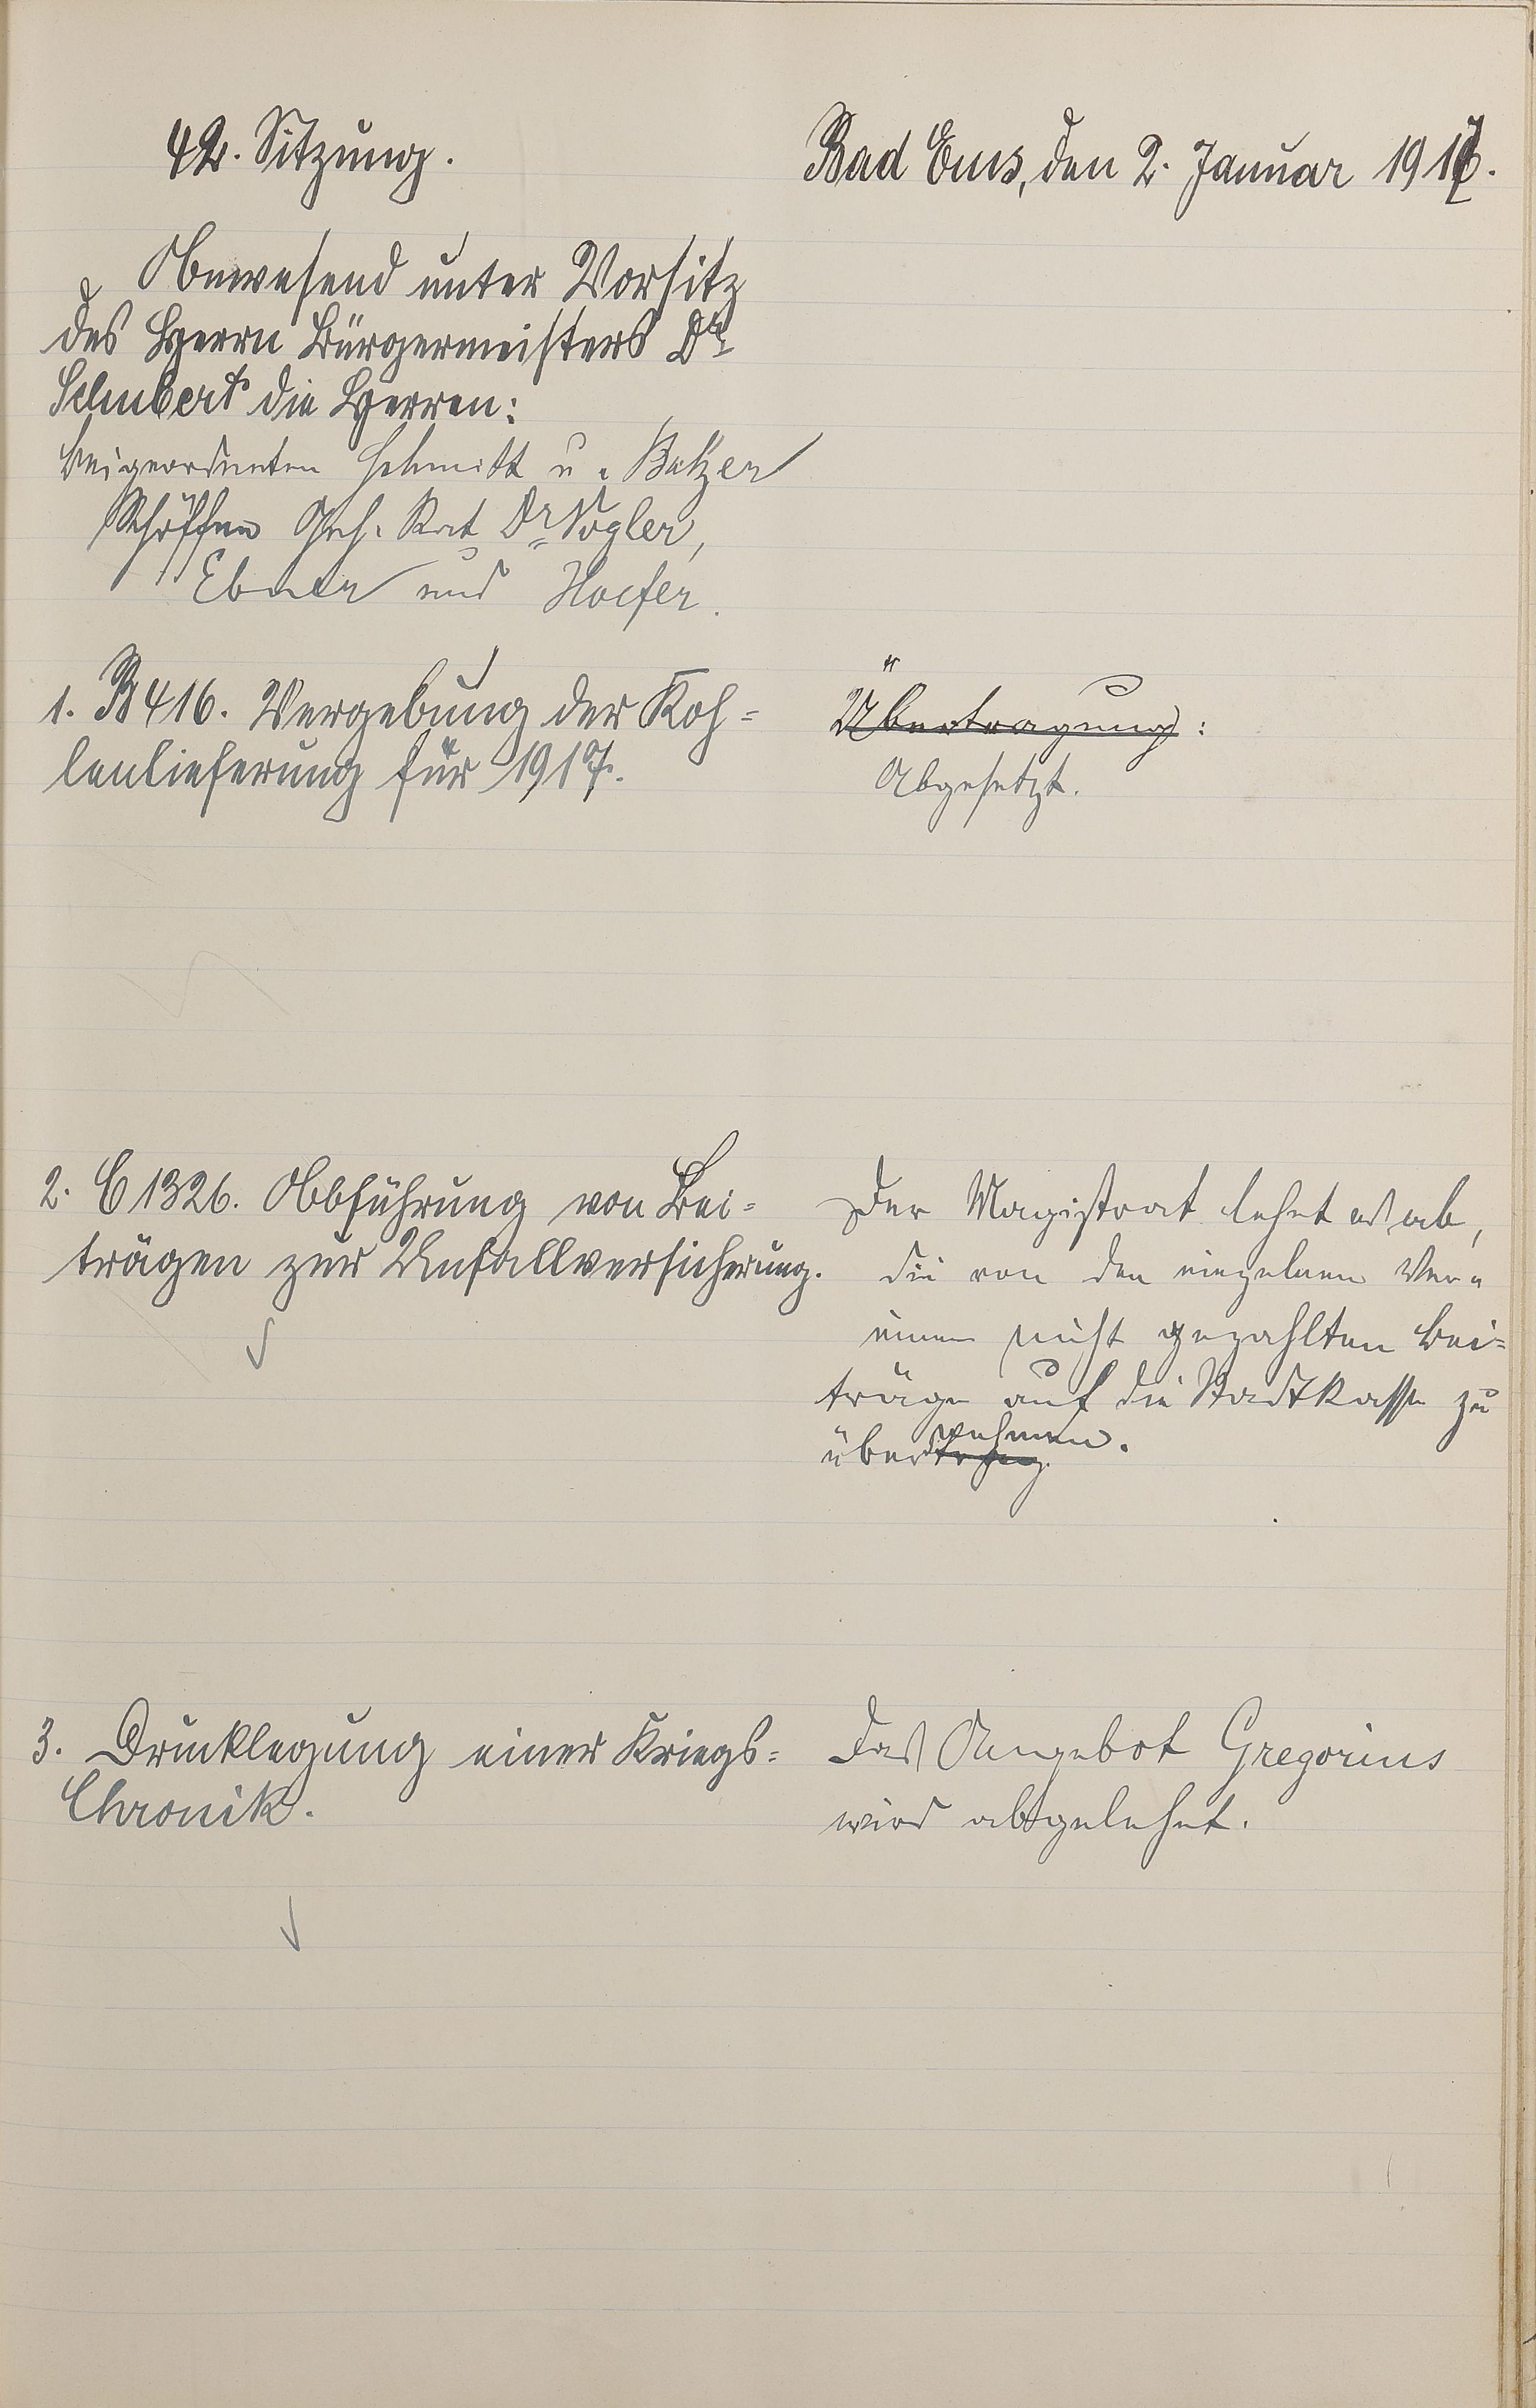 42. Sitzung.
Bad Ems, den 2. Januar 1917.
Anwesend unter Vorsitz
des Herrn Bürgermeisters Dr.
Schubert die Herren:
Beigeordneten Schmitt u. Balzer
Schöffen Geh. Rat Dr. Vogler,
Ebner und Hoefer.
1. B 416. Vergebung der Koh=
lenlieferung für 1917.
Übertragung:
Abgesetzt.
2. C 1326. Abführung von Bei=
trägen zur Unfallversicherung.
Der Magistrat lehnt es ab,
die von den einzelnen Ver=
einen nicht gezahlten Bei=
träge auf die Stadtkasse zu
übernehmen.
3. Drucklegung einer Kriegs=
Chronik.
Das Angebot Gregorius
wird abgelehnt.